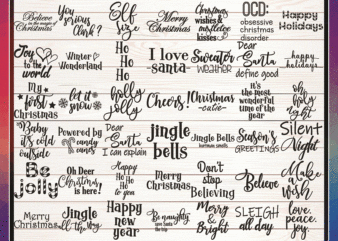 Believe
in the magic of
Christmas
You
serious
Clark?
Elf
Size
Merry
Christmas
Christmas
wishes &
mistletoe
kisses
OCD:
obsessive
christmas
disorder
Happy
Holidays
Joy
to the
world
Winter
Wonderland
Ho
Ho
Ho
I love
-santa-
Sweater
WEATHER
Dear
Santa
define good
happy
holidays
My
first
Christmas
let it
snow
holly
jolly
Cheers!
Christmas
-cutie-
it's the
most wonderful
time of the
year
oh
holy
night
Baby
it's cold
outside
Powered by
candy
canes
Dear
Santa
I can explain
jingle
bells
Jingle Bells
Season's
GREETINGS
Silent
Night
Be
Jolly
Oh Deer
Christmas
is here!
Happy
Ho Ho
Ho
to you
Merry
Christmas
Don't
stop
Believing
Believe
Make
a
wish
Merry
Christmas
Jingle
all the
Way
Happy
new
year
Be naughty
save Santa
the trip
Merry
&
Bright
SLEIGH
all day
Love,
peace,
joy.